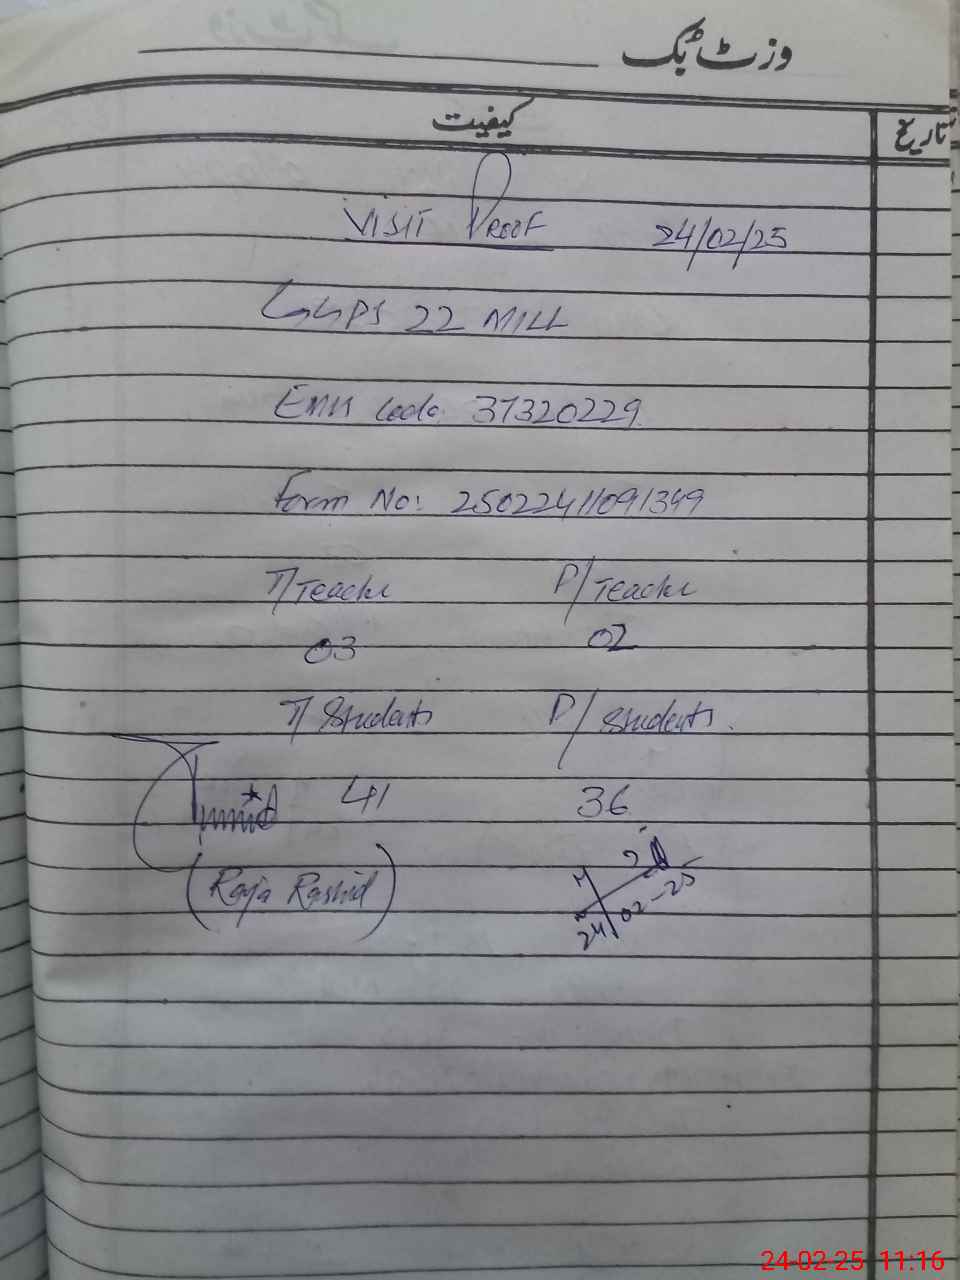 وزٹ بک
کیفیت تاریخ
VISIT Proof 24/02/25
GGPS 22 MILL
EMIS Code 37320229
Form No: 25022411091349
T/Teacher P/Teacher
03 02
T/Students P/Students.
41 36
(Raja Rashid)
24 02-25
24-02-25 11:16